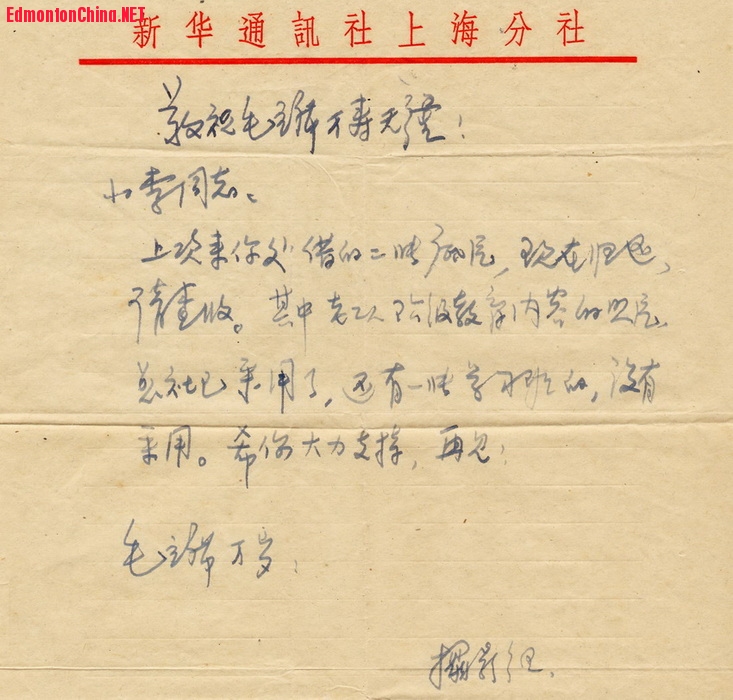 EdmontonChina.NET
新华通訊社上海分社
敬祝毛主席万寿无疆！
小李同志：
上次来你处借的二张底片，现在归还，
请查收。其中老工人阶级教育内容的照片，
总社已采用了，还有一张学习班的，没有
采用。希你大力支持，再见！
毛主席万岁！
摄影组